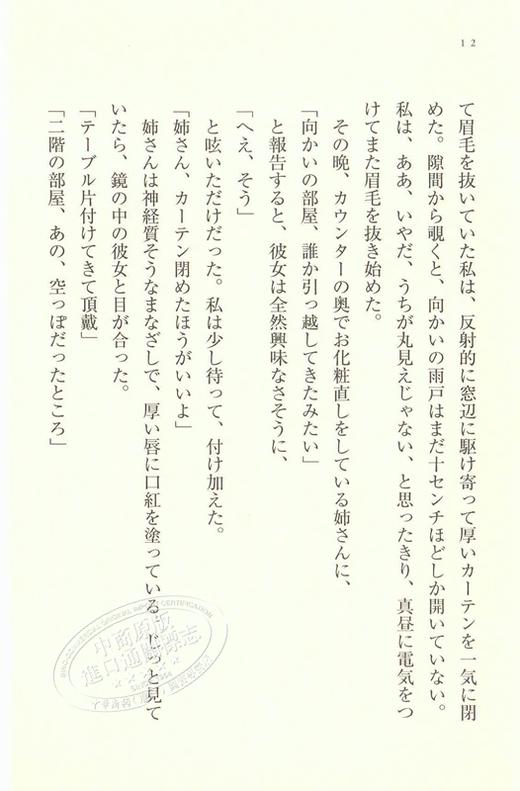 12
て眉毛を抜いていた私は、反射的に窓辺に駆け寄って厚いカーテンを一気に閉
めた。隙間から覗くと、向かいの雨戸はまだ十センチほどしか開いていない。
私は、ああ、いやだ、うちが丸見えじゃない、と思ったきり、真昼に電気をつ
けてまた眉毛を抜き始めた。
その晩、カウンターの奥でお化粧直しをしている姉さんに、
「向かいの部屋、誰か引っ越してきたみたい」
と報告すると、彼女は全然興味なさそうに、
「へえ、そう」
と呟いただけだった。私は少し待って、付け加えた。
「姉さん、カーテン閉めたほうがいいよ」
姉さんは神経質そうなまなざしで、厚い唇に口紅を塗っている。じっと見て
いたら、鏡の中の彼女と目が合った。
「テーブル片付けてきて頂戴」
「二階の部屋、あの、空っぽだったところ」
中商原版